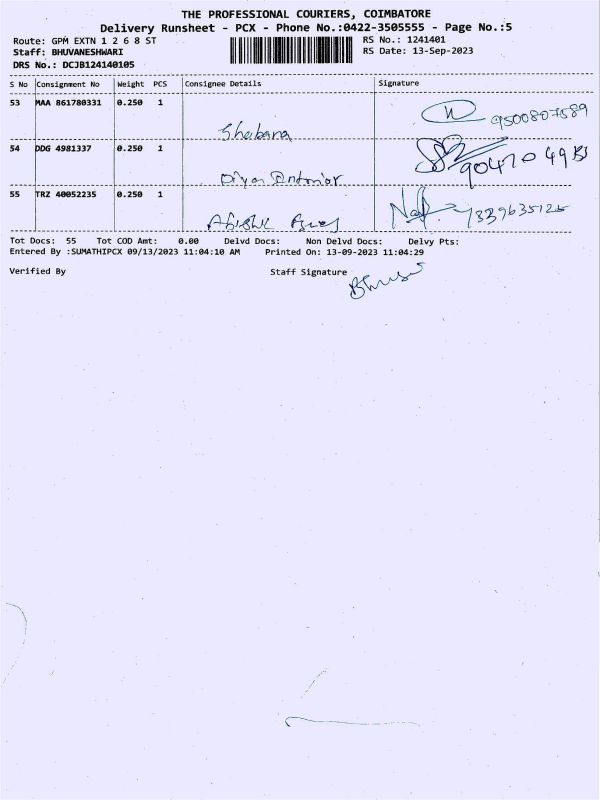 THE PROFESSIONAL COURIERS, COIMBATORE
Delivery Runsheet - PCX - Phone No.:0422-3505555 - Page No.:5
Route: GPM EXTN 1 2 6 8 ST RS No.: 1241401
Staff: BHUVANESHWARI RS Date: 13-Sep-2023
DRS No.: DCJB124140105
S No Consignment No Weight PCS Consignee Details Signature
53 MAA 861780331 0.250 1
Shabana 9500807589
54 DDG 4981337 0.250 1
55 TRZ 40052235 0.250 1
Tot Docs: 55 Tot COD Amt: 0.00 Delvd Docs: Non Delvd Docs: Delvy Pts:
Entered By :SUMATHIPCX 09/13/2023 11:04:10 AM Printed On: 13-09-2023 11:04:29
Verified By Staff Signature